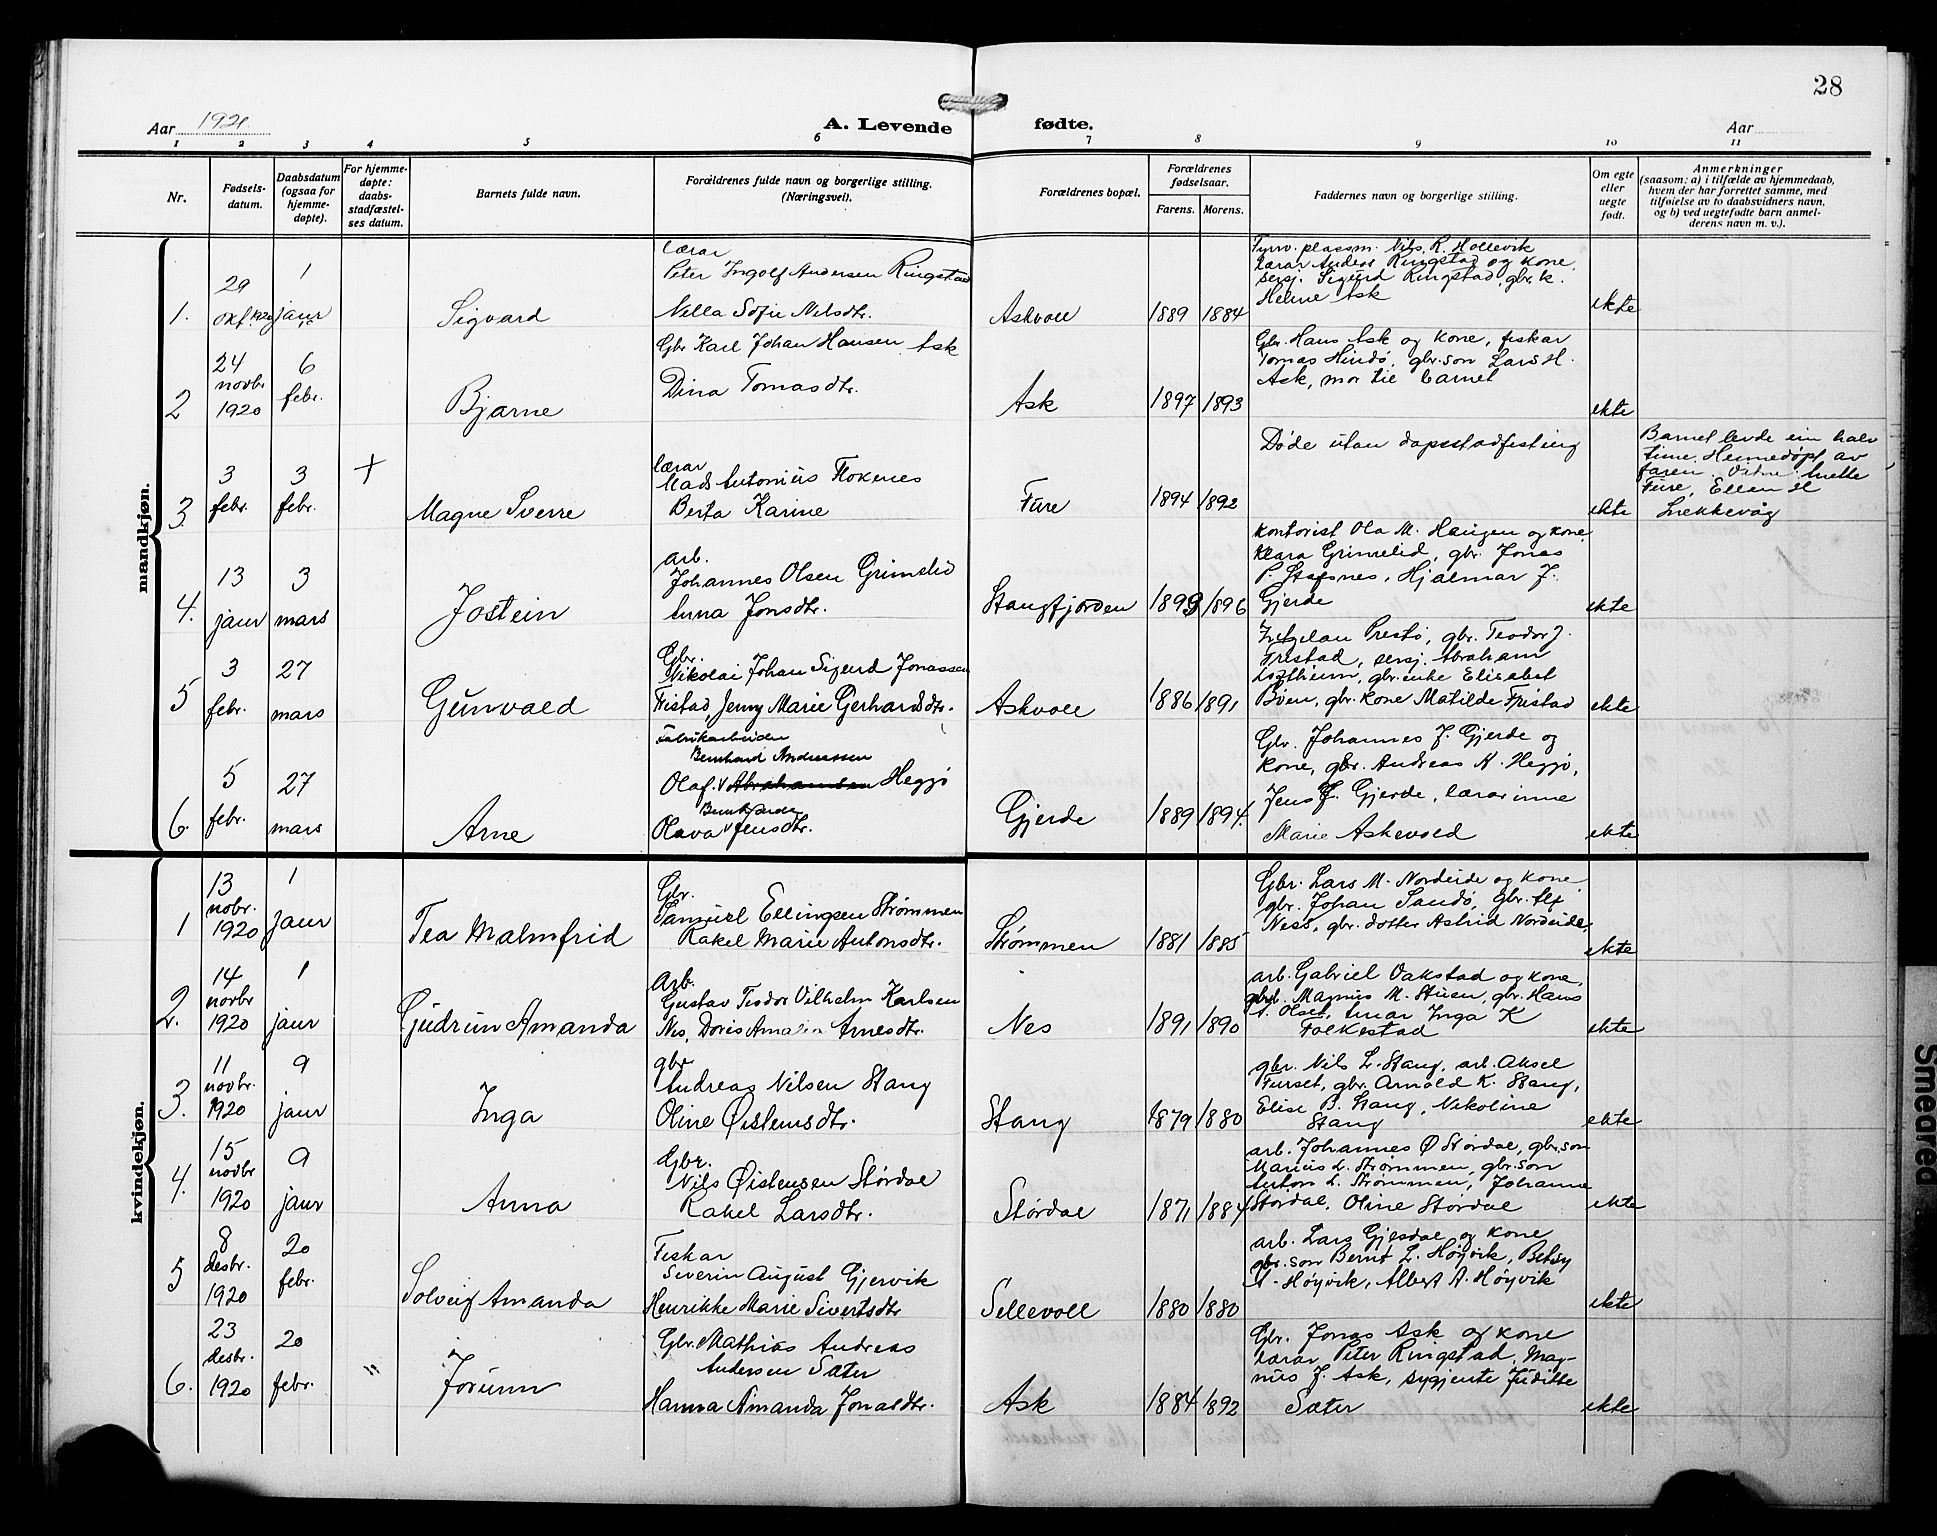 28
Aar 1921
A. Levende fødte.
Aar
1 2 3 4 5 6 7 8 9 10 11
Nr.
Fødsels-
datum.
Daabsdatum
(ogsaa for
hjemme-
døpte).
For hjemme-
døpte:
daabs-
stadfæstel-
ses datum.
Barnets fulde navn.
Forældrenes fulde navn og borgerlige stilling.
(Næringsvei).
Forældrenes bopæl.
Forældrenes
fødselsaar.
Farens. Morens.
Faddernes navn og borgerlige stilling.
Om egte
eller
uegte
født.
Anmerkninger
(saasom: a) i tilfælde av hjemmedaab,
hvem der har forrettet samme, med
tilføielse av to daabsvidners navn,
og b) ved uegtefødte barn anmel-
derens navn m. v.).
mandkjøn.
1.
29
okt. 1920
1
jaur
Sigvard
lærar
Peter Ingolf Andersen Ringstad
Nella Sofie Nilsdtr.
Askvoll
1889 1884
Furv. plassm. Nils R. Hollevik
Lærar Andeas Ringstad og kone,
sersj. Sigurd Ringstad, gbr. k.
Heline Ask
ekte
2
24
novbr
1920
6
febr.
Bjarne
Gbr Karl Johan Hansen Ask
Dina Tomasdtr.
Ask
1897 1893
Gbr. Hans Ask og kone, fiskar
Tomas Hindø, gbr.son Lars H.
Ask, mor til barnet
ekte
3.
3
febr.
3
febr.
+
Magne Sverre
lærar
Mads Antonius Flokenes
Berta Karine
Fure
1894 1892
Døde utan dapsstadfesting
ekte
Barnet levde ein halv
time. Heimedøpt av
faren.
Fure, Ellen H
4.
13
jaur
3
mars
Jostein
arb.
Johannes Olsen Grimelid
Anna Jonsdtr.
Stangfjorden
1899 1896
Kontorist Ola M. Haugen og kone,
Klara Grimelid, gbr. Jonas
P. Stafsnes, Hjalmar J.
Gjerde
ekte
5
3
febr.
27
mars
Gunvald
Gbr.
Nikolai Johan Sigurd Jonassen
Fristad, Jenny Marie Gerhardsdtr.
Askvoll
1886 1891
Prestø, gbr. Teodor J.
Fristad, sersj. Abraham
gbr. enke Elisabet
Bøen, gbr. kone Matilde Fristad
ekte
6.
5
febr.
27
mars
Arne
Fabrikarbeider
Bernhard Andreassen
Olaf. v Abrahamsen Heggø
Olava v Jensdtr.
Gjerde
1889 1894.
Gbr. Johannes J. Gjerde og
kone, gbr. Andreas A. Heggø,
Jens J. Gjerde, lærarinne
Marie Askevold
ekte
kvindekjøn.
1
13
nobr.
1920
1
jaur
Tea Malmfrid
Gbr.
Samuel Ellingsen Strømmen
Rakel Marie Antonsdtr.
Strømmen
1881 1885
Gbr. Lars M. Nordeide og kone,
gbr. Johan Sandø, gbr. Alf
Ness, gbr. dotter Astrid Nordeide,
ekte
2.
14
novbr
1920
1
jaur
Gudrun Amanda
Arb.
Gustav Teodor Vilhelm Karlsen
Nes, Doris Amalia Arnesdtr.
Nes
1891 1890
arb. Gabriel Vakstad og kone,
gbr. Magnus M. Stuen, gbr. Hans
A. Olset, Inga K
Folkestad
ekte
3.
11
novbr.
1920
9
jaur
Inga
gbr
Andreas Nilsen Stang
Oline Øistensdtr.
Stang
1879 1880
gbr. Nils L. Stang, arb. Aksel
Furset, gbr. Arnold K. Stang,
Elise B. Stang, Nikoline
Stang
ekte
4.
15
novbr
1920
9
jaur
Anna
Gbr.
Nils Øistensen Størdal
Rakel Larsdtr.
Størdal
1871 1884
arb. Johannes Ø Størdal, gbr.son
Marius L. Strømmen, gbr.son
Anton L. Strømmen, Johanne
Størdal, Oline Størdal
ekte
5
8
desbr.
1920
20
febr.
Solveig Amanda
Fiskar
Severin August Gjervik
Henrikke Marie Sivertsdtr
Sellevoll
1880 1880
arb. Lars Gjesdal og kone
gbr.son Bernt L. Høyvik, Betsy
A. Høyvik, Albert A. Høyvik
ekte
6.
23
desbr.
1920
20
febr.
"
Jorunn
Gbr. Mathias Andreas
Andersen Sæter
Hanna Amanda Jonasdtr.
Ask
1884 1892
Gbr. Jonas Ask og kone
Lærar Peter Ringstad, Mag-
nus J. Ask, sygjente Juditte
Sæter
ekte
Smeared